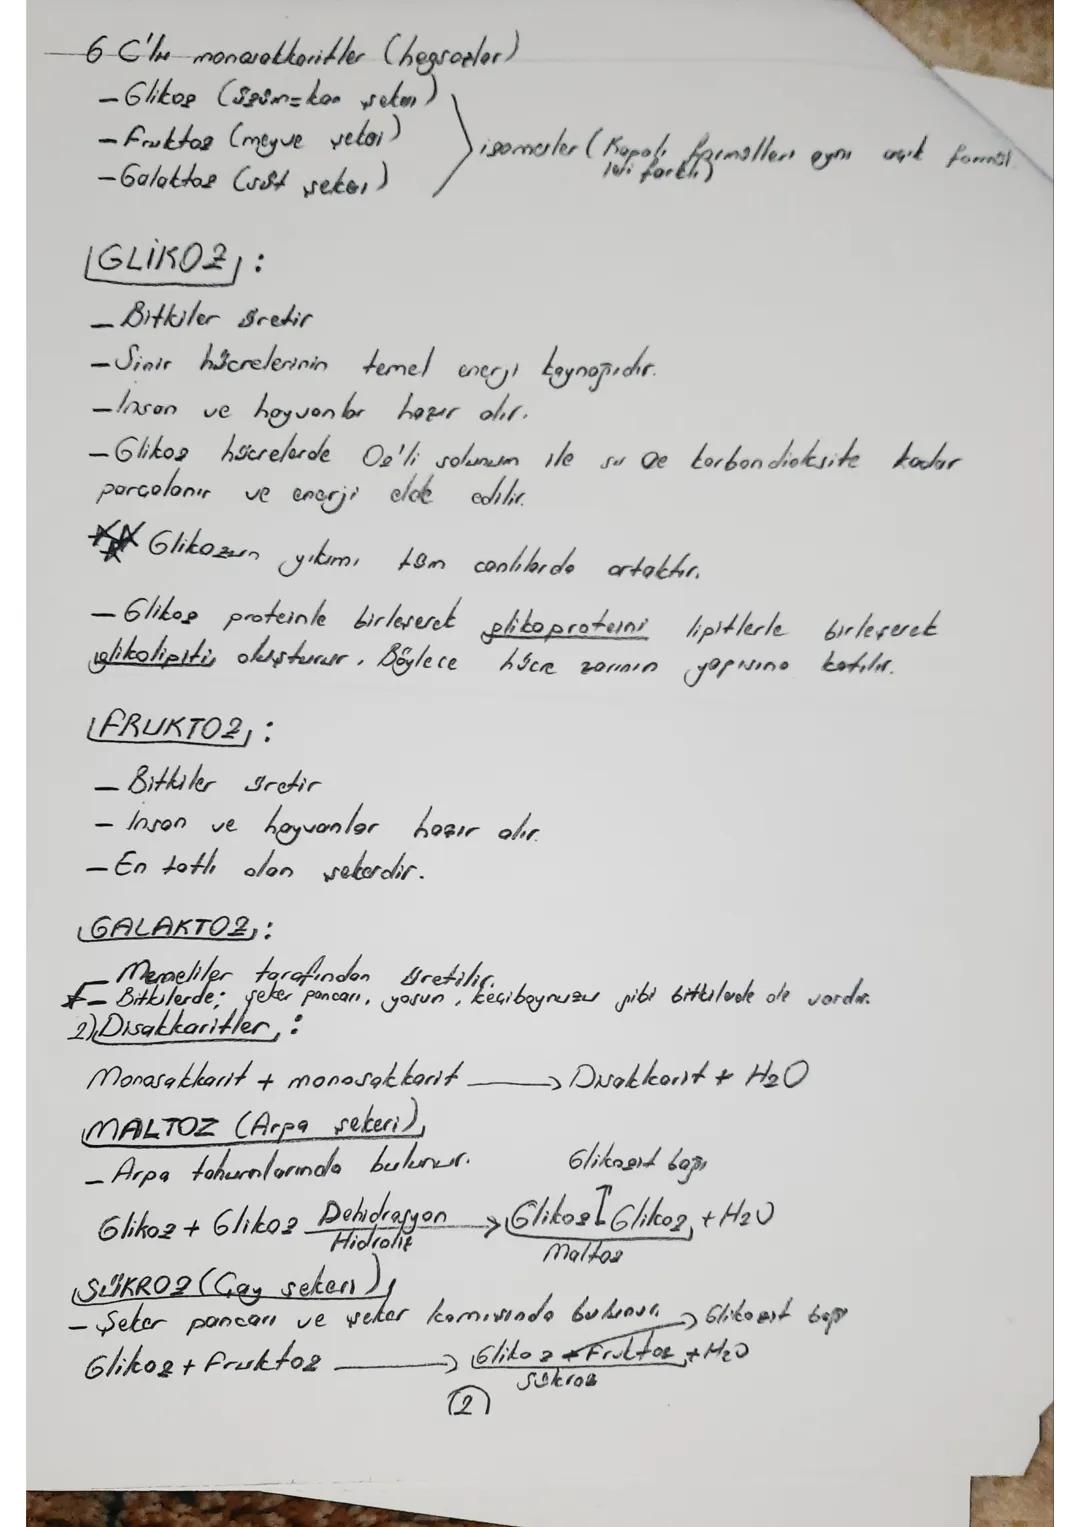 6 C'lu monosakkaritler (hegsozlar)
- Glikoz (üzüm=kan şekeri)
- Fruktoz (meyve şekeri)
- Galaktoz (süt şekeri)
izomerler (Kapalı formülleri aynı açık formül
leri farklı)
GLİKOZ :
- Bitkiler üretir
- Sinir hücrelerinin temel enerji kaynağıdır.
- İnsan ve hayvanlar hazır alır.
- Glikoz hücrelerde O2'li solunum ile su ve karbondioksite kadar
parçalanır ve enerji elde edilir.
Glikozun yıkımı tüm canlılarda ortaktır.
- Glikoz proteinle birleşerek glikoproteini lipitlerle birleşerek
glikolipiti oluşturur. Böylece hücre zarının yapısına katılır.
FRUKTOZ :
- Bitkiler üretir
- İnsan ve hayvanlar hazır alır.
- En tatlı olan şekerdir.
GALAKTOZ :
- Memeliler tarafından üretilir.
- Bitkilerde; şeker pancarı, yosun, keçiboynuzu gibi bitkilerde de vardır.
2) Disakkaritler :
Monosakkarit + monosakkarit → Disakkarit + H2O
MALTOZ (Arpa şekeri)
- Arpa tohumlarında bulunur. Glikozit bağı
Glikoz + Glikoz Dehidrasyon → Glikoz Glikoz + H2O
Hidroliz Maltoz
SÜKROZ (Çay şekeri)
- Şeker pancarı ve şeker kamışında bulunur. → Glikozit bağı
Glikoz + Fruktoz → Glikoz Fruktoz + H2O
Sükroz
2